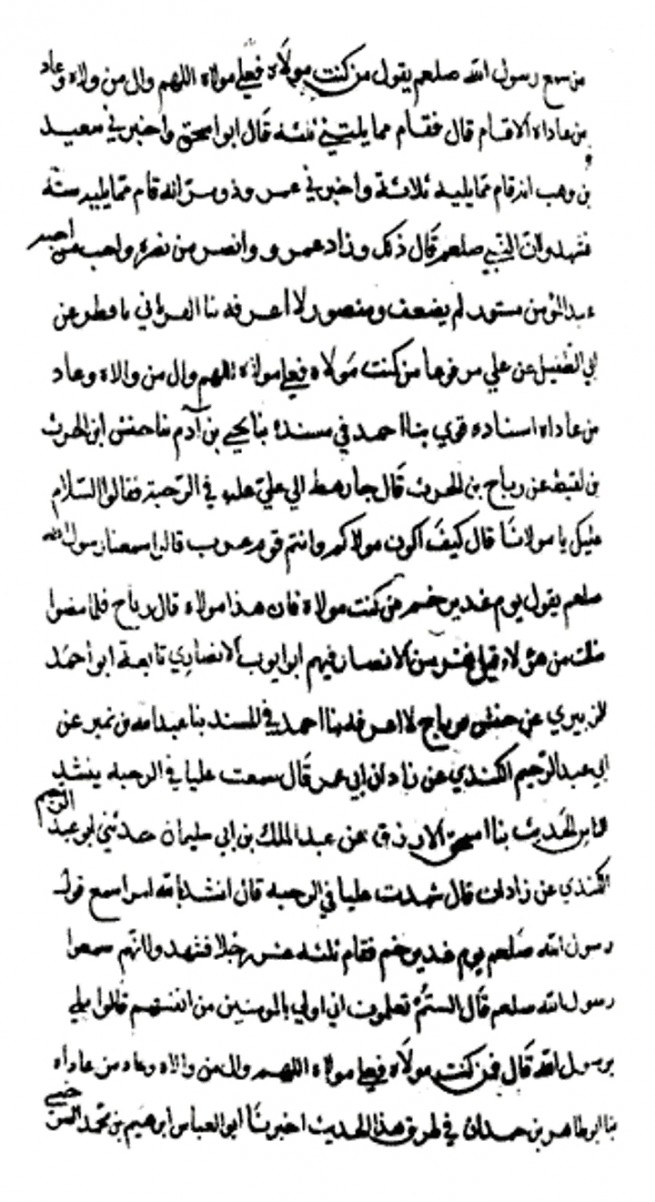 من سمع رسول الله صلعم يقول من كنت مولاه فعلي مولاه اللهم وال من والاه وعاد
من عاداه الا قام قال فقام مما يليني ثلثة قال ابو اسحق واخبرني سعيد
بن وهب انه قام مما يليه ثلاثة واخبرني عمرو ذو مر انه قام مما يليه ستة
فشهدوا ان النبي صلعم قال ذلك وزاد عمرو وانصر من نصره واحب من احبه
عبد المؤمن مستور لم يضعف ومنصور لا اعرفه نا الفريابي نا فطر عن
ابي الطفيل عن علي مرفوعا من كنت مولاه فعلي مولاه اللهم وال من والاه وعاد
من عاداه اسناده قوي بنا احمد في مسنده بنا يحيى بن آدم نا حنش ابن الحرث
بن لقيط عن رياح بن الحرث قال جا رهط الى علي في الرحبة فقالوا السلام
عليك يا مولانا قال كيف اكون مولاكم وانتم قوم عرب قالوا سمعنا رسول الله
صلعم يقول يوم غدير خم من كنت مولاه فان هذا مولاه قال رياح فلما مضوا
قلت من هؤلاء قيل نفر من الانصار فيهم ابو ايوب الانصاري تابعه ابو احمد
الزبيري عن حنش رياح لا اعرفه بنا احمد في المسند بنا عبد الله بن نمير عن
ابي عبد الرحيم الكندي عن زاذان ابي عمر قال سمعت عليا في الرحبه ينشد
الناس الحديث بنا اسحق الازرق عن عبد الملك بن ابي سليمان حدثني ابو عبد الرحيم
الكندي عن زاذان قال شهدت عليا في الرحبه قال انشد بالله امرا سمع قول
رسول الله صلعم يوم غدير خم فقام ثلثه عشر رجلا فشهدوا انهم سمعوا
رسول الله صلعم قال الستم تعلمون اني اولى بالمومنين من انفسهم قالوا بلى
يرسول الله قال فمن كنت مولاه فعلي مولاه اللهم وال من والاه وعاد من عاداه
بنا ابو طاهر بن حمدان في طرق هذا الحديث اخبرنا ابو العباس ابرهيم بن محمد